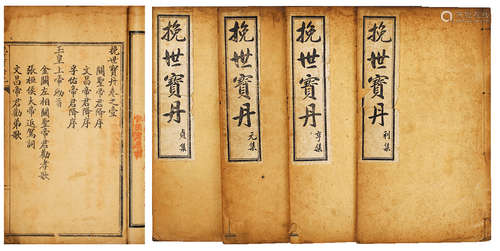 挽世寶丹卷之壹
關聖帝君降序
文昌帝君降序
孚佑帝君降序
玉皇上帝幼育
金闕左相關聖帝君勸孝歌
張桓侯大帝返駕詞
文昌帝君勸弟歌
挽世寶丹
貞集
挽世寶丹
元集
挽世寶丹
亨集
挽世寶丹
利集